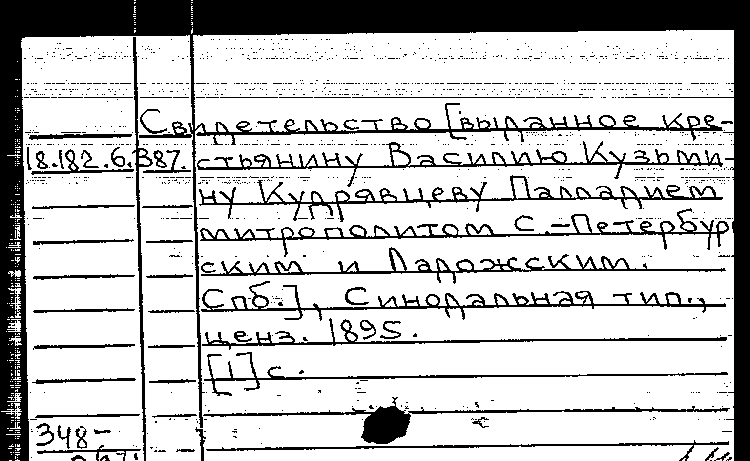 Свидетельство [выданное кре-
18.182.6.387. стьянину Василию Кузьми-
ну Кудрявцеву Палладием
митрополитом С.-Петербург
ским и Ладожским.
Спб.], Синодальная тип.,
ценз. 1895.
[1] с.
348-